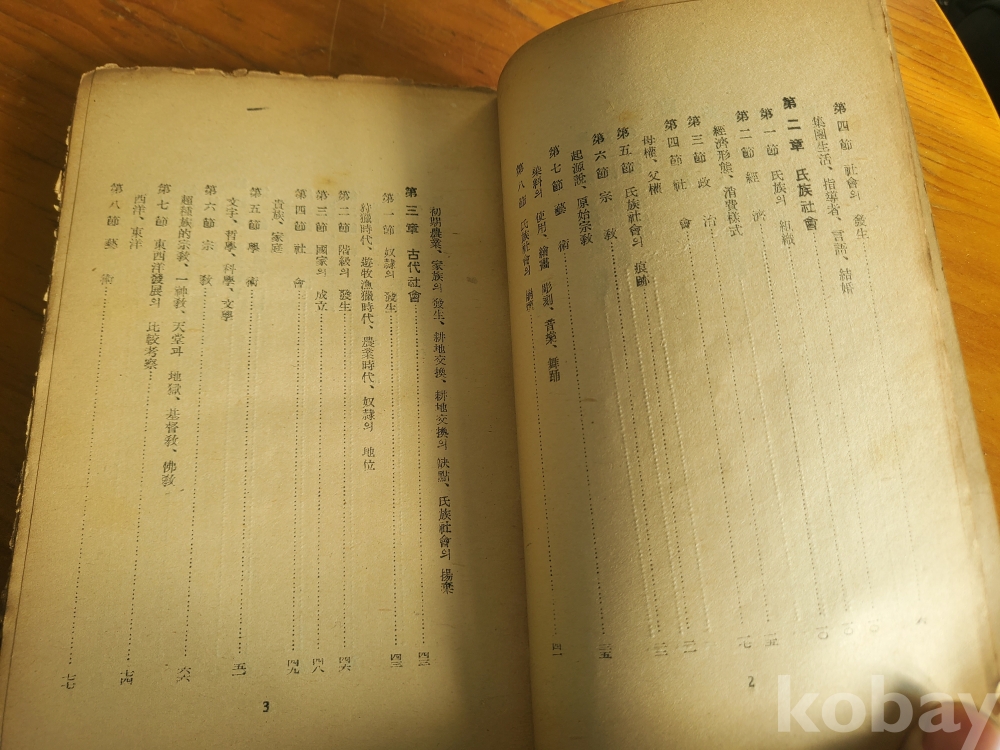 第四節 社會의 發生
集團生活、指導者、言語、結婚
第二章 氏族社會
第一節 氏族의 組織
第二節 經濟
經濟形態、消費樣式
第三節 政治
第四節 社會
母權、父權
第五節 氏族社會의 痕跡
第六節 宗敎
起源說、原始宗敎
第七節 藝術
染料의 使用、繪畵 彫刻、音樂、舞踊
第八節 氏族社會의
2
初期農業、家族의 發生、耕地交換、耕地交換의 缺點、氏族社會의 揚棄
第三章 古代社會 四三
第一節 奴隷의 發生 四三
狩獵時代、遊牧漁獵時代、農業時代、奴隷의 地位
第二節 階級의 發生 四六
第三節 國家의 成立 四八
第四節 社會 四九
貴族、家庭
第五節 學術 五一
文字、哲學、科學、文學
第六節 宗敎 六六
超種族的宗敎、一神敎、天堂과 地獄、基督敎、佛敎
第七節 東西洋發展의 比較考察 七四
西洋、東洋
第八節 藝術 七七
3
kobay